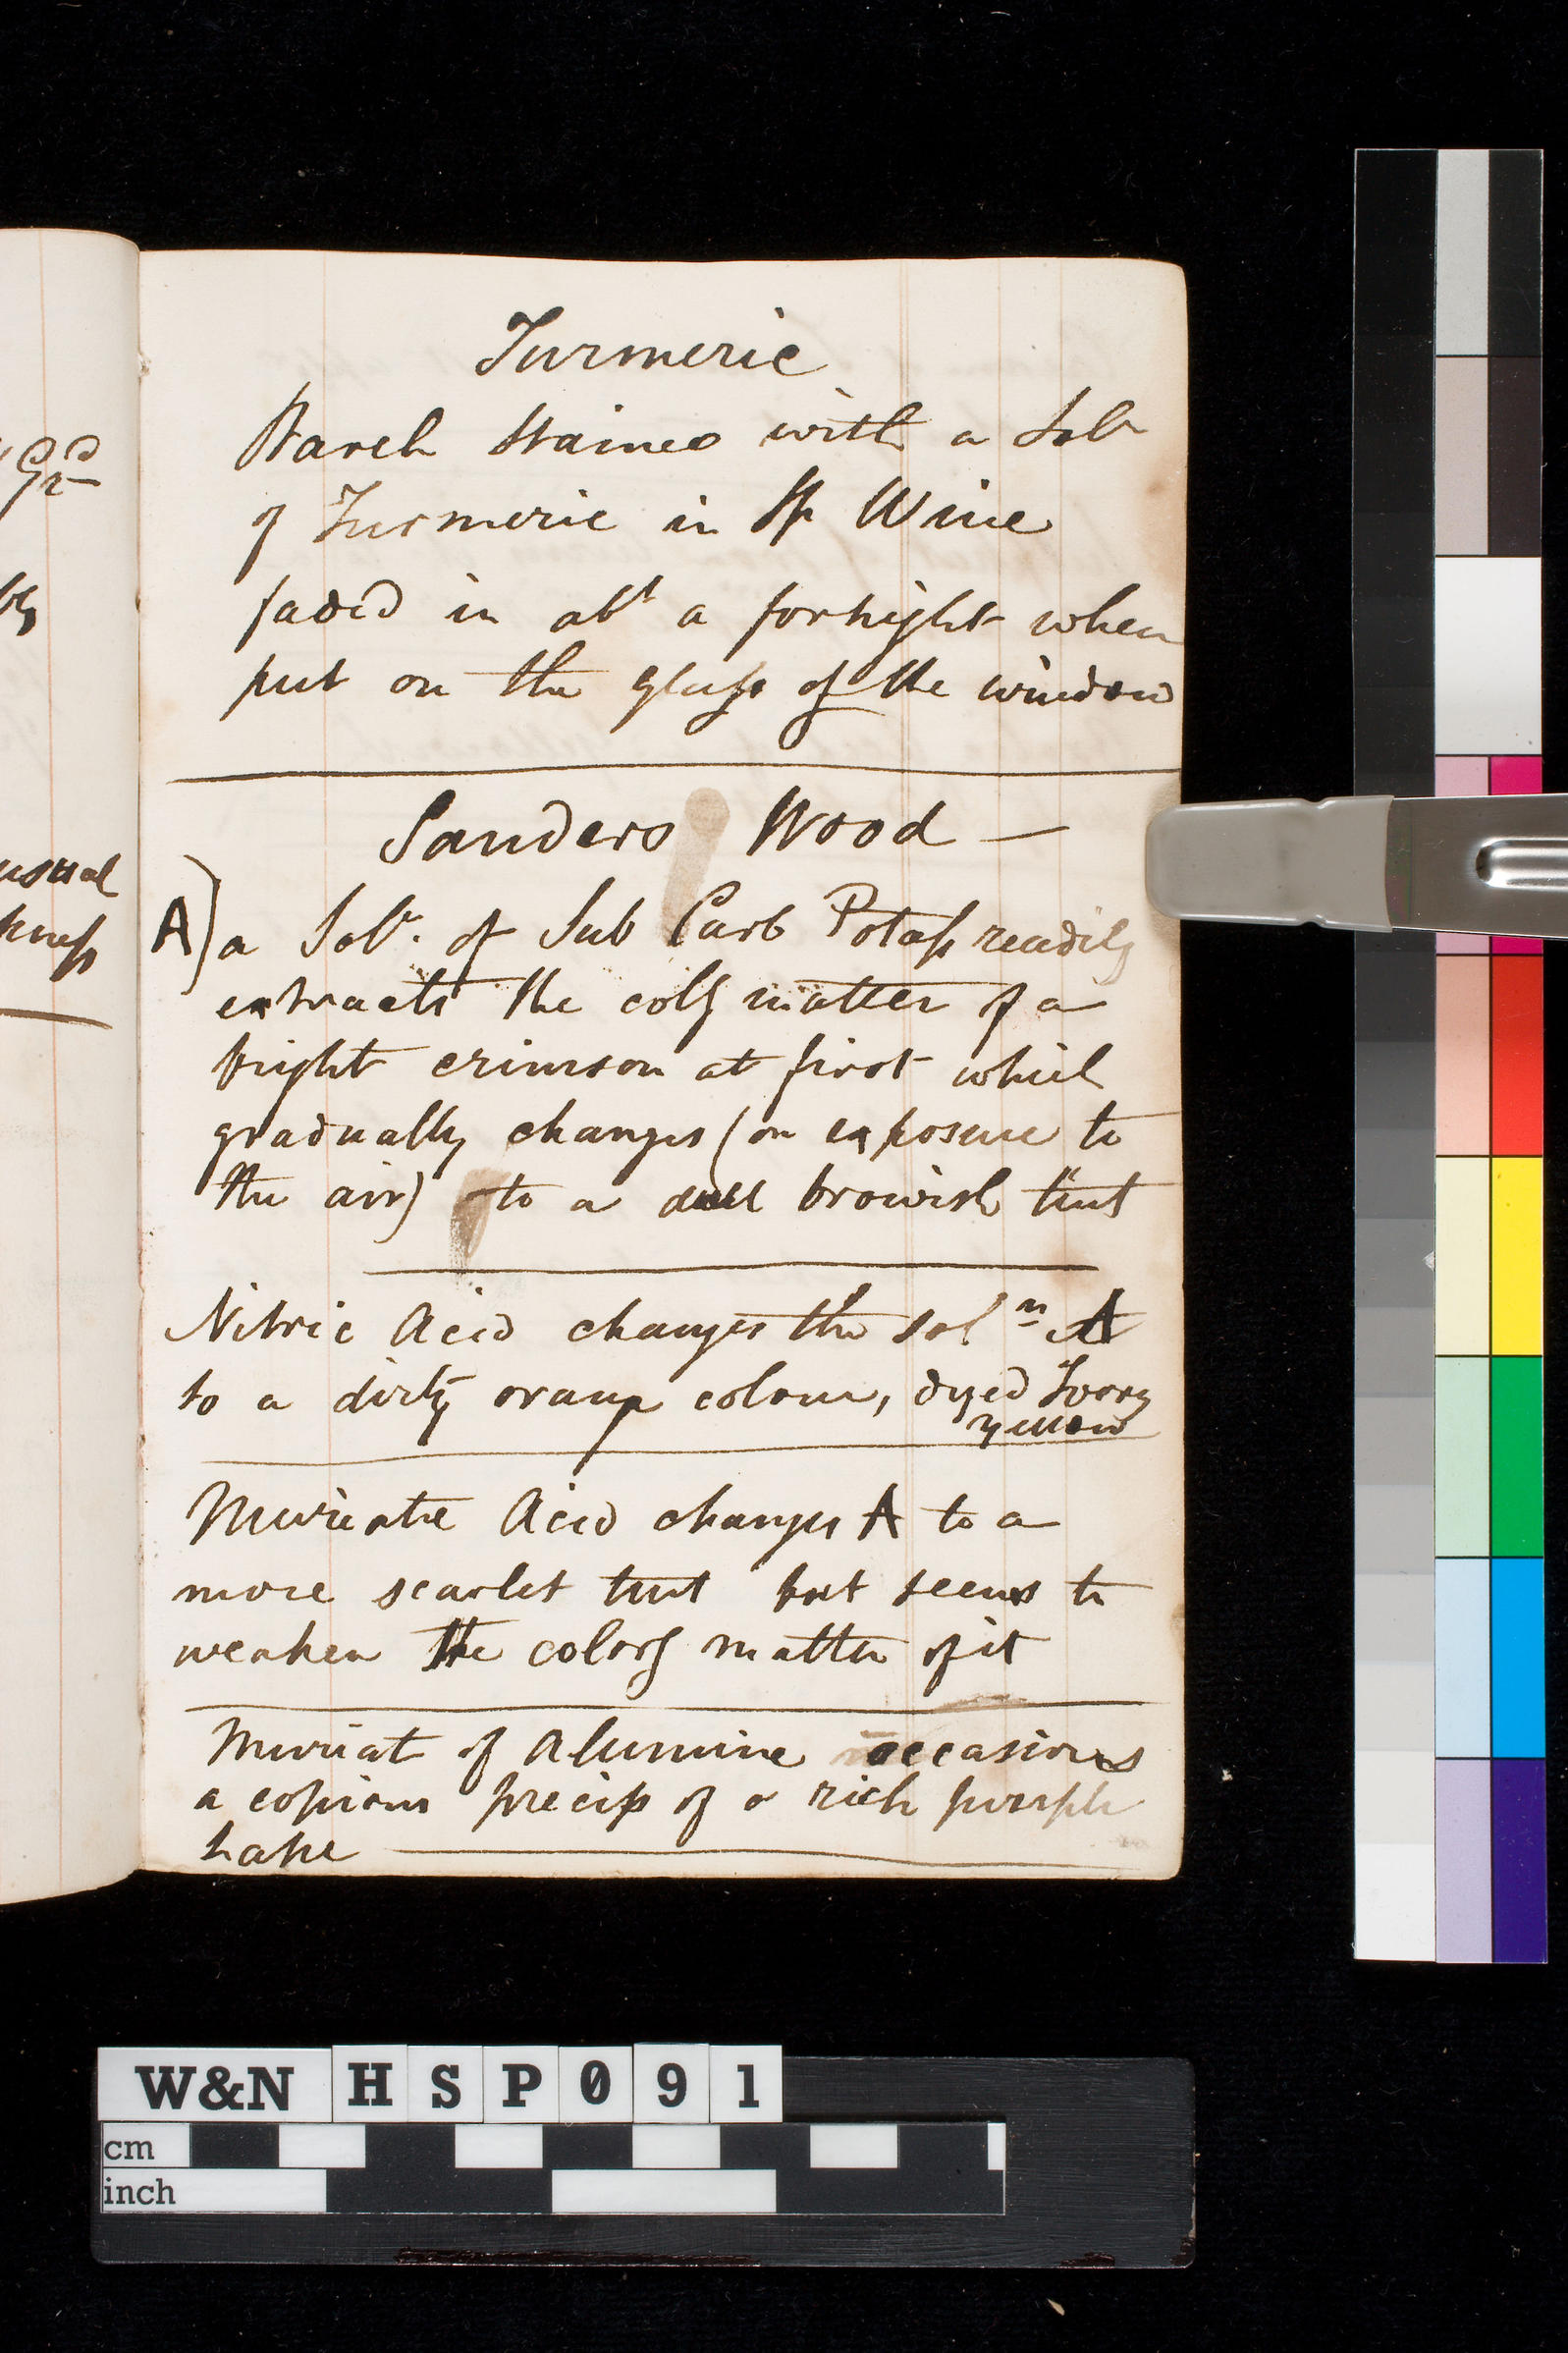 Turmeric
Starch stained with a Soln
of Turmeric in Sp Wine
faded in abt a fortnight when
put on the glass of the window
Sanders Wood —
A) a Soln. of Sub Carb Potass readily
extracts the colg matter of a
bright crimson at first which
gradually changes (on exposure to
the air) to a dull browish tint
Nitric Acid changes the soln A
to a dirty orange colour, dyed Ivory
yellow
Muriatic Acid changes A to a
more scarlet tint but seems to
weaken the colorg matter of it
Muriat of Alumine occasions
a copious precip of a rich purple
Lake
usual
W&N HSP091
cm
inch